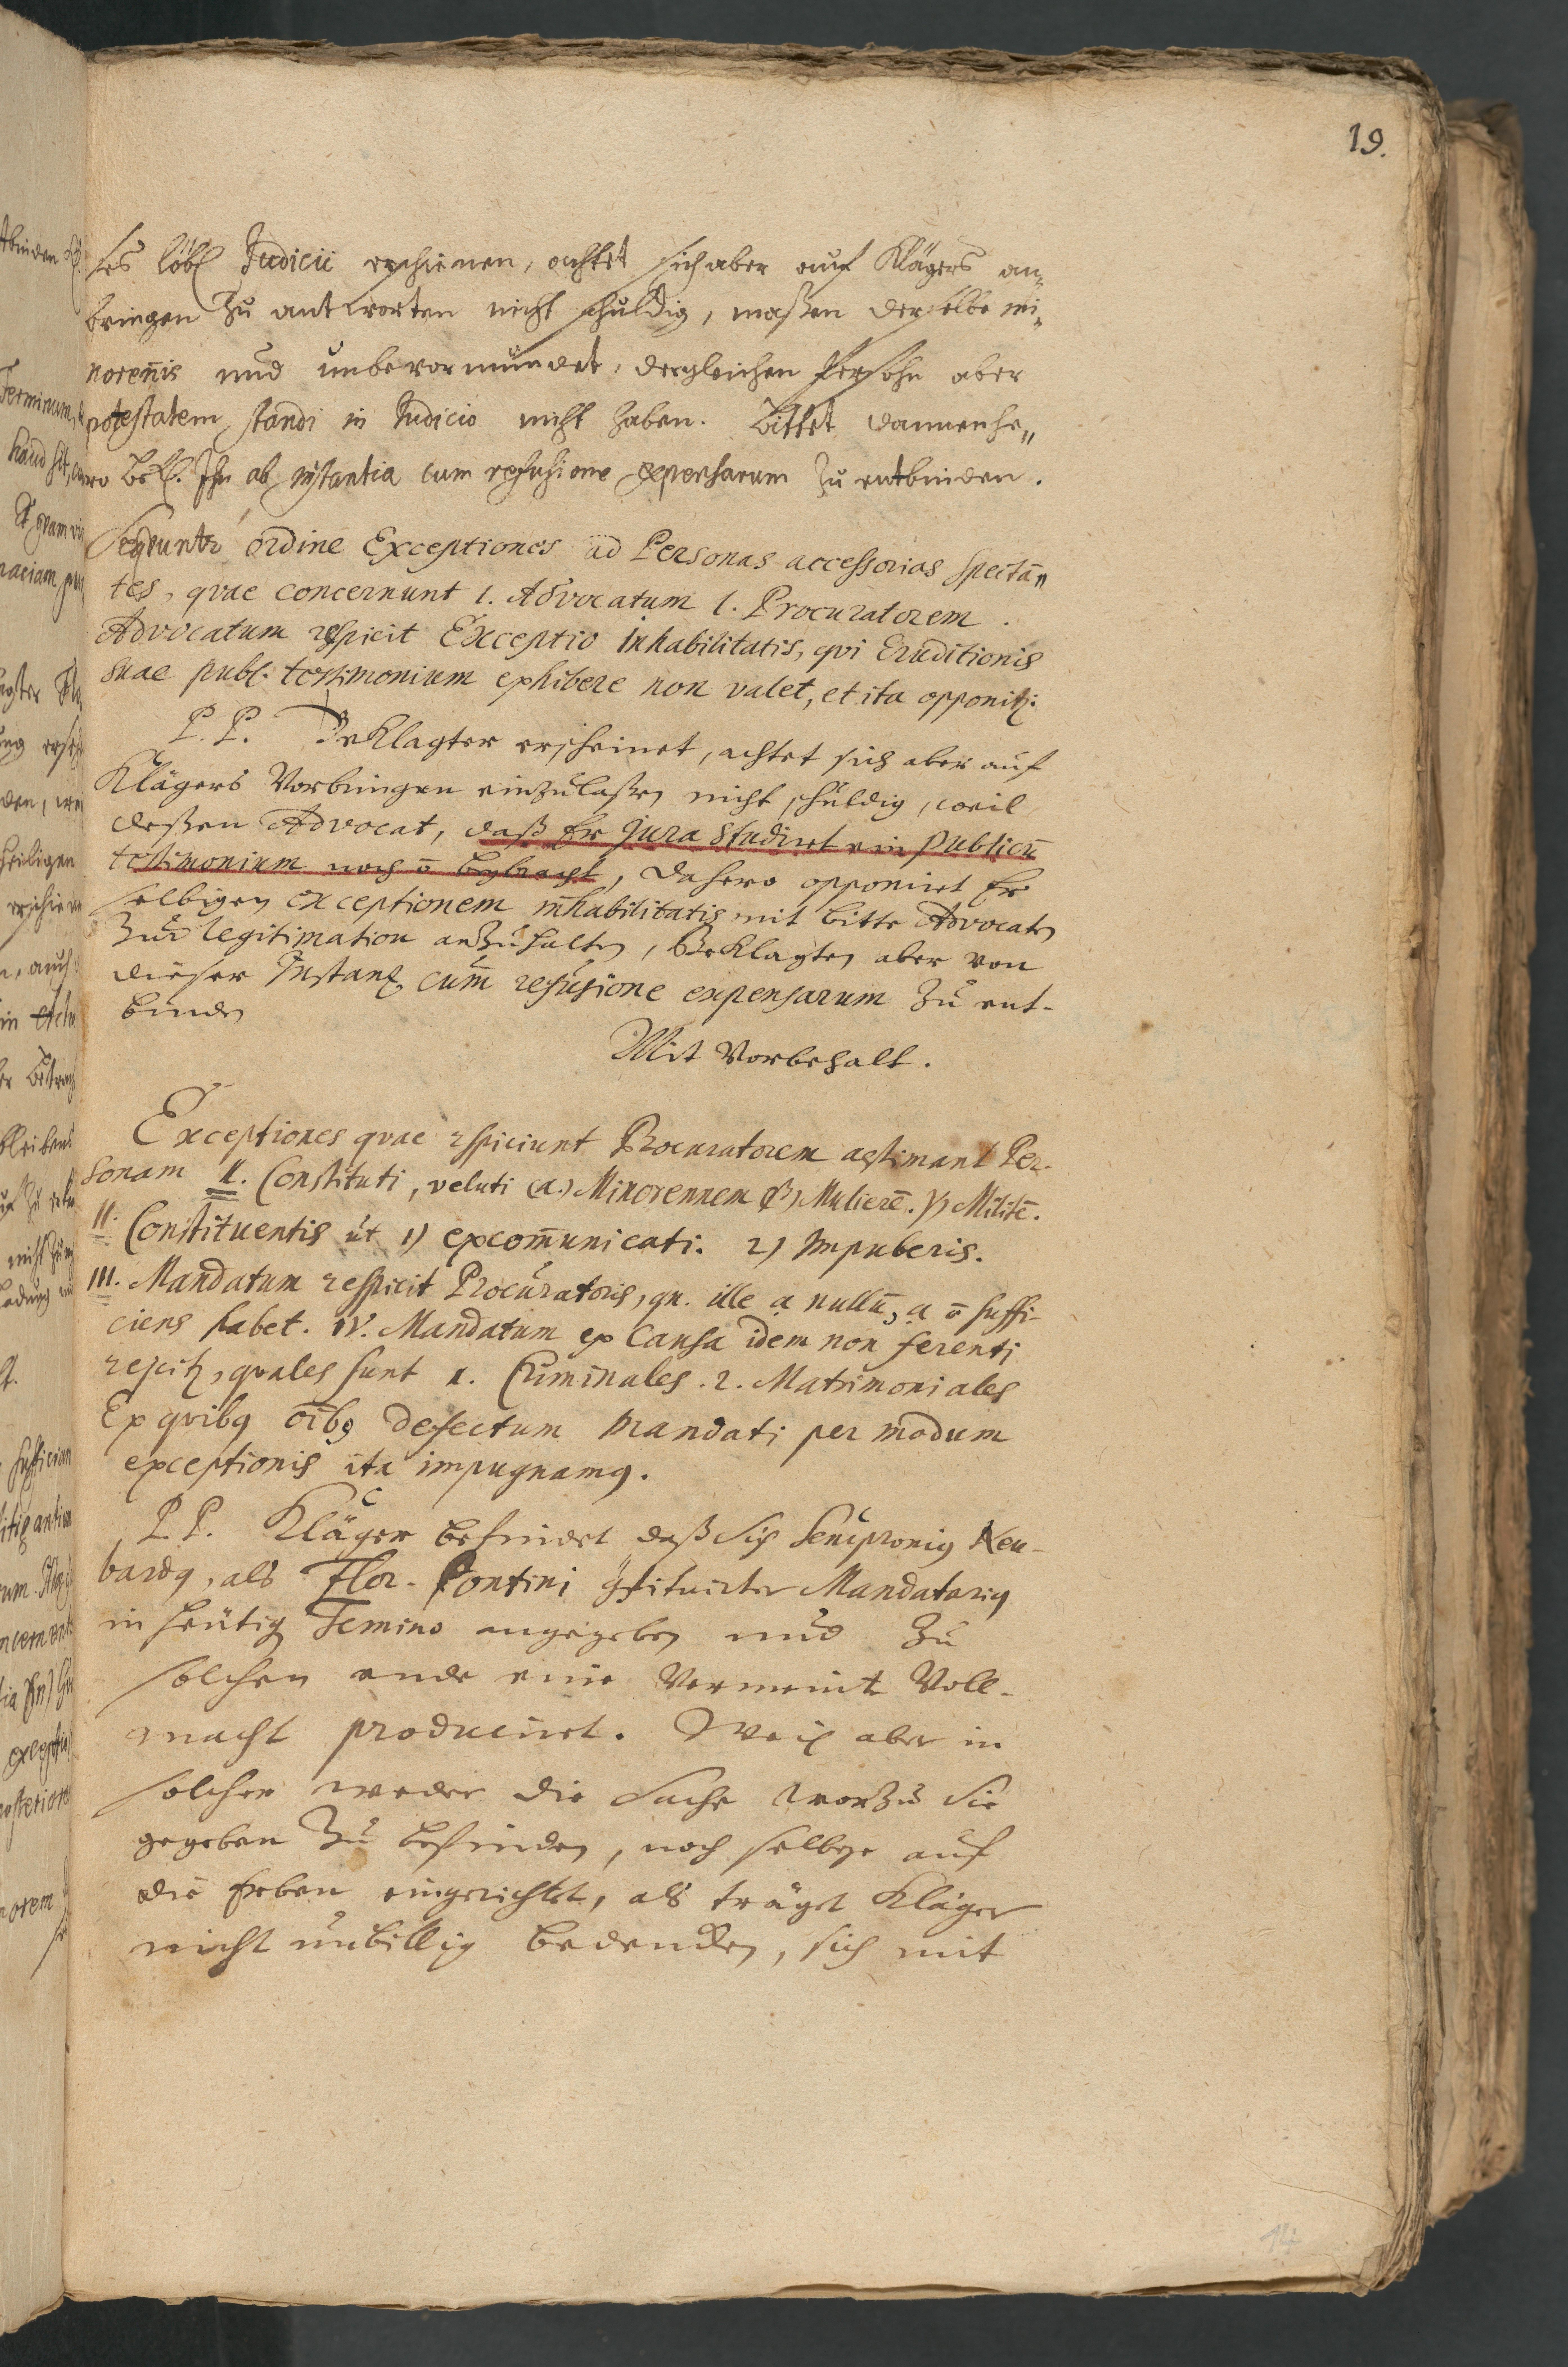 19.
ses löbl Judicii erschienen, achtet sich aber auf Klägers an=
bringen Zu antworten nicht schuldig, maßen derselbe mi=
noreñis und unbevormundet, dergleichen Persohn aber
potestatem standi in Judicio nicht haben. Bittet dannenhe=
ro Bekl. Ihn ab instantia cum refusione expensarum Zu entbinden.
Sequuntr ordine Exceptiones ad Personas accessorias spectā=
tes, quae concernunt 1. Advocatum 1. Procuratorem.
Advocatum respicit Exceptio inhabilitatis, qui Eruditionis
suae publ. testimonium exhibere non valet, et ita opponitz:
P. P. Beklagter erscheinet, achtet sich aber auf
Klägers Vorbringen einzulaßen nicht schuldig, weil
deßen Advocat, daß Er Jura studiret ein publicū
testimonium noch ō beybracht, dahero opponiret Er
selbigen exceptionem inhabilitatis mit bitte Advocaten
Zur legitimation anzuhalten, Beklagten aber von
dieser Instanz cum̄ refusione expensarum Zu ent-
binden
Mit Vorbehalt.
Exceptiones quae rspiciunt Procuratorem aestimant Per-
sonam I. Constituti, veluti (α.) Minorennem β) Mulierē. γ) Militē.
II. Constituentis ut 1) excom̄unicati. 2) Impuberis.
III. Mandatum respicit Procuratoris, qn. ille a nullū, a ō suffi-
ciens habet. IV. Mandatum ex Causa idem non ferenti
rejicitz, quales sunt 1. Criminales. 2. Matrimoniales
Ex quibq oībq defectum mandati per modum
exceptionis ita impugnamq.
P. P. Kläger befindet daß sich Semproniq Neu-
bardq, als Flor. Pontini 9stituirter Mandatariq
in heutig Termino angegeben und Zu
solchen ende eine Vermeint Voll-
macht produciret. Weil aber in
solcher weder die Sache worzu Sie
gegeben Zu befinden, noch selbige auf
die Erben eingerichtet, als träget Kläger
nicht unbillig bedencken, sich mit